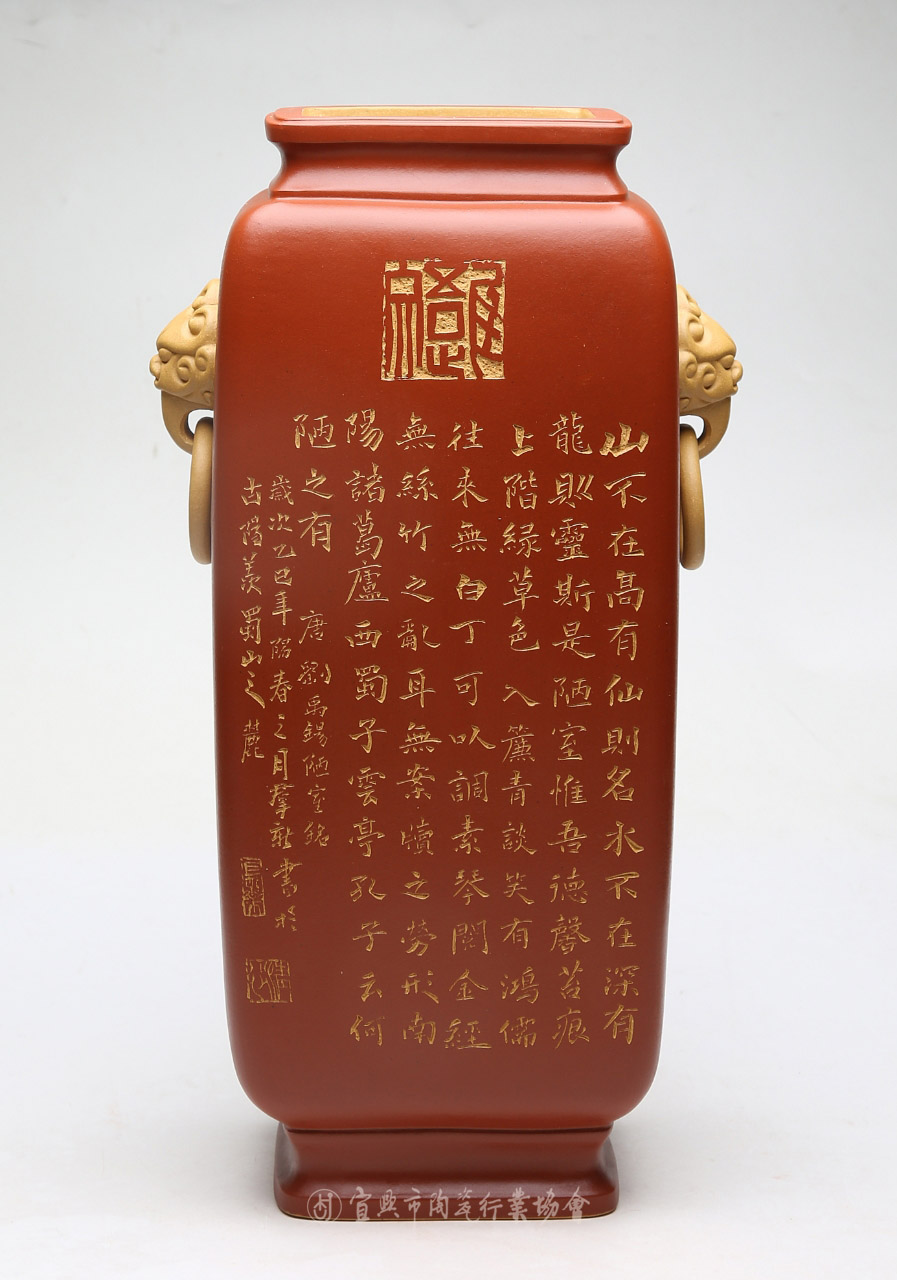 山不在高有仙則名水不在深有
龍則靈斯是陋室惟吾德馨苔痕
上階緑草色入簾青談笑有鴻儒
往來無白丁可以調素琴閱金經
無絲竹之亂耳無案牘之勞形南
陽諸葛廬西蜀子雲亭孔子云何
陋之有 唐劉禹錫陋室銘
歲次乙巳年陽春之月書於
古陽羨蜀山之麓
宜興市陶瓷行業協會